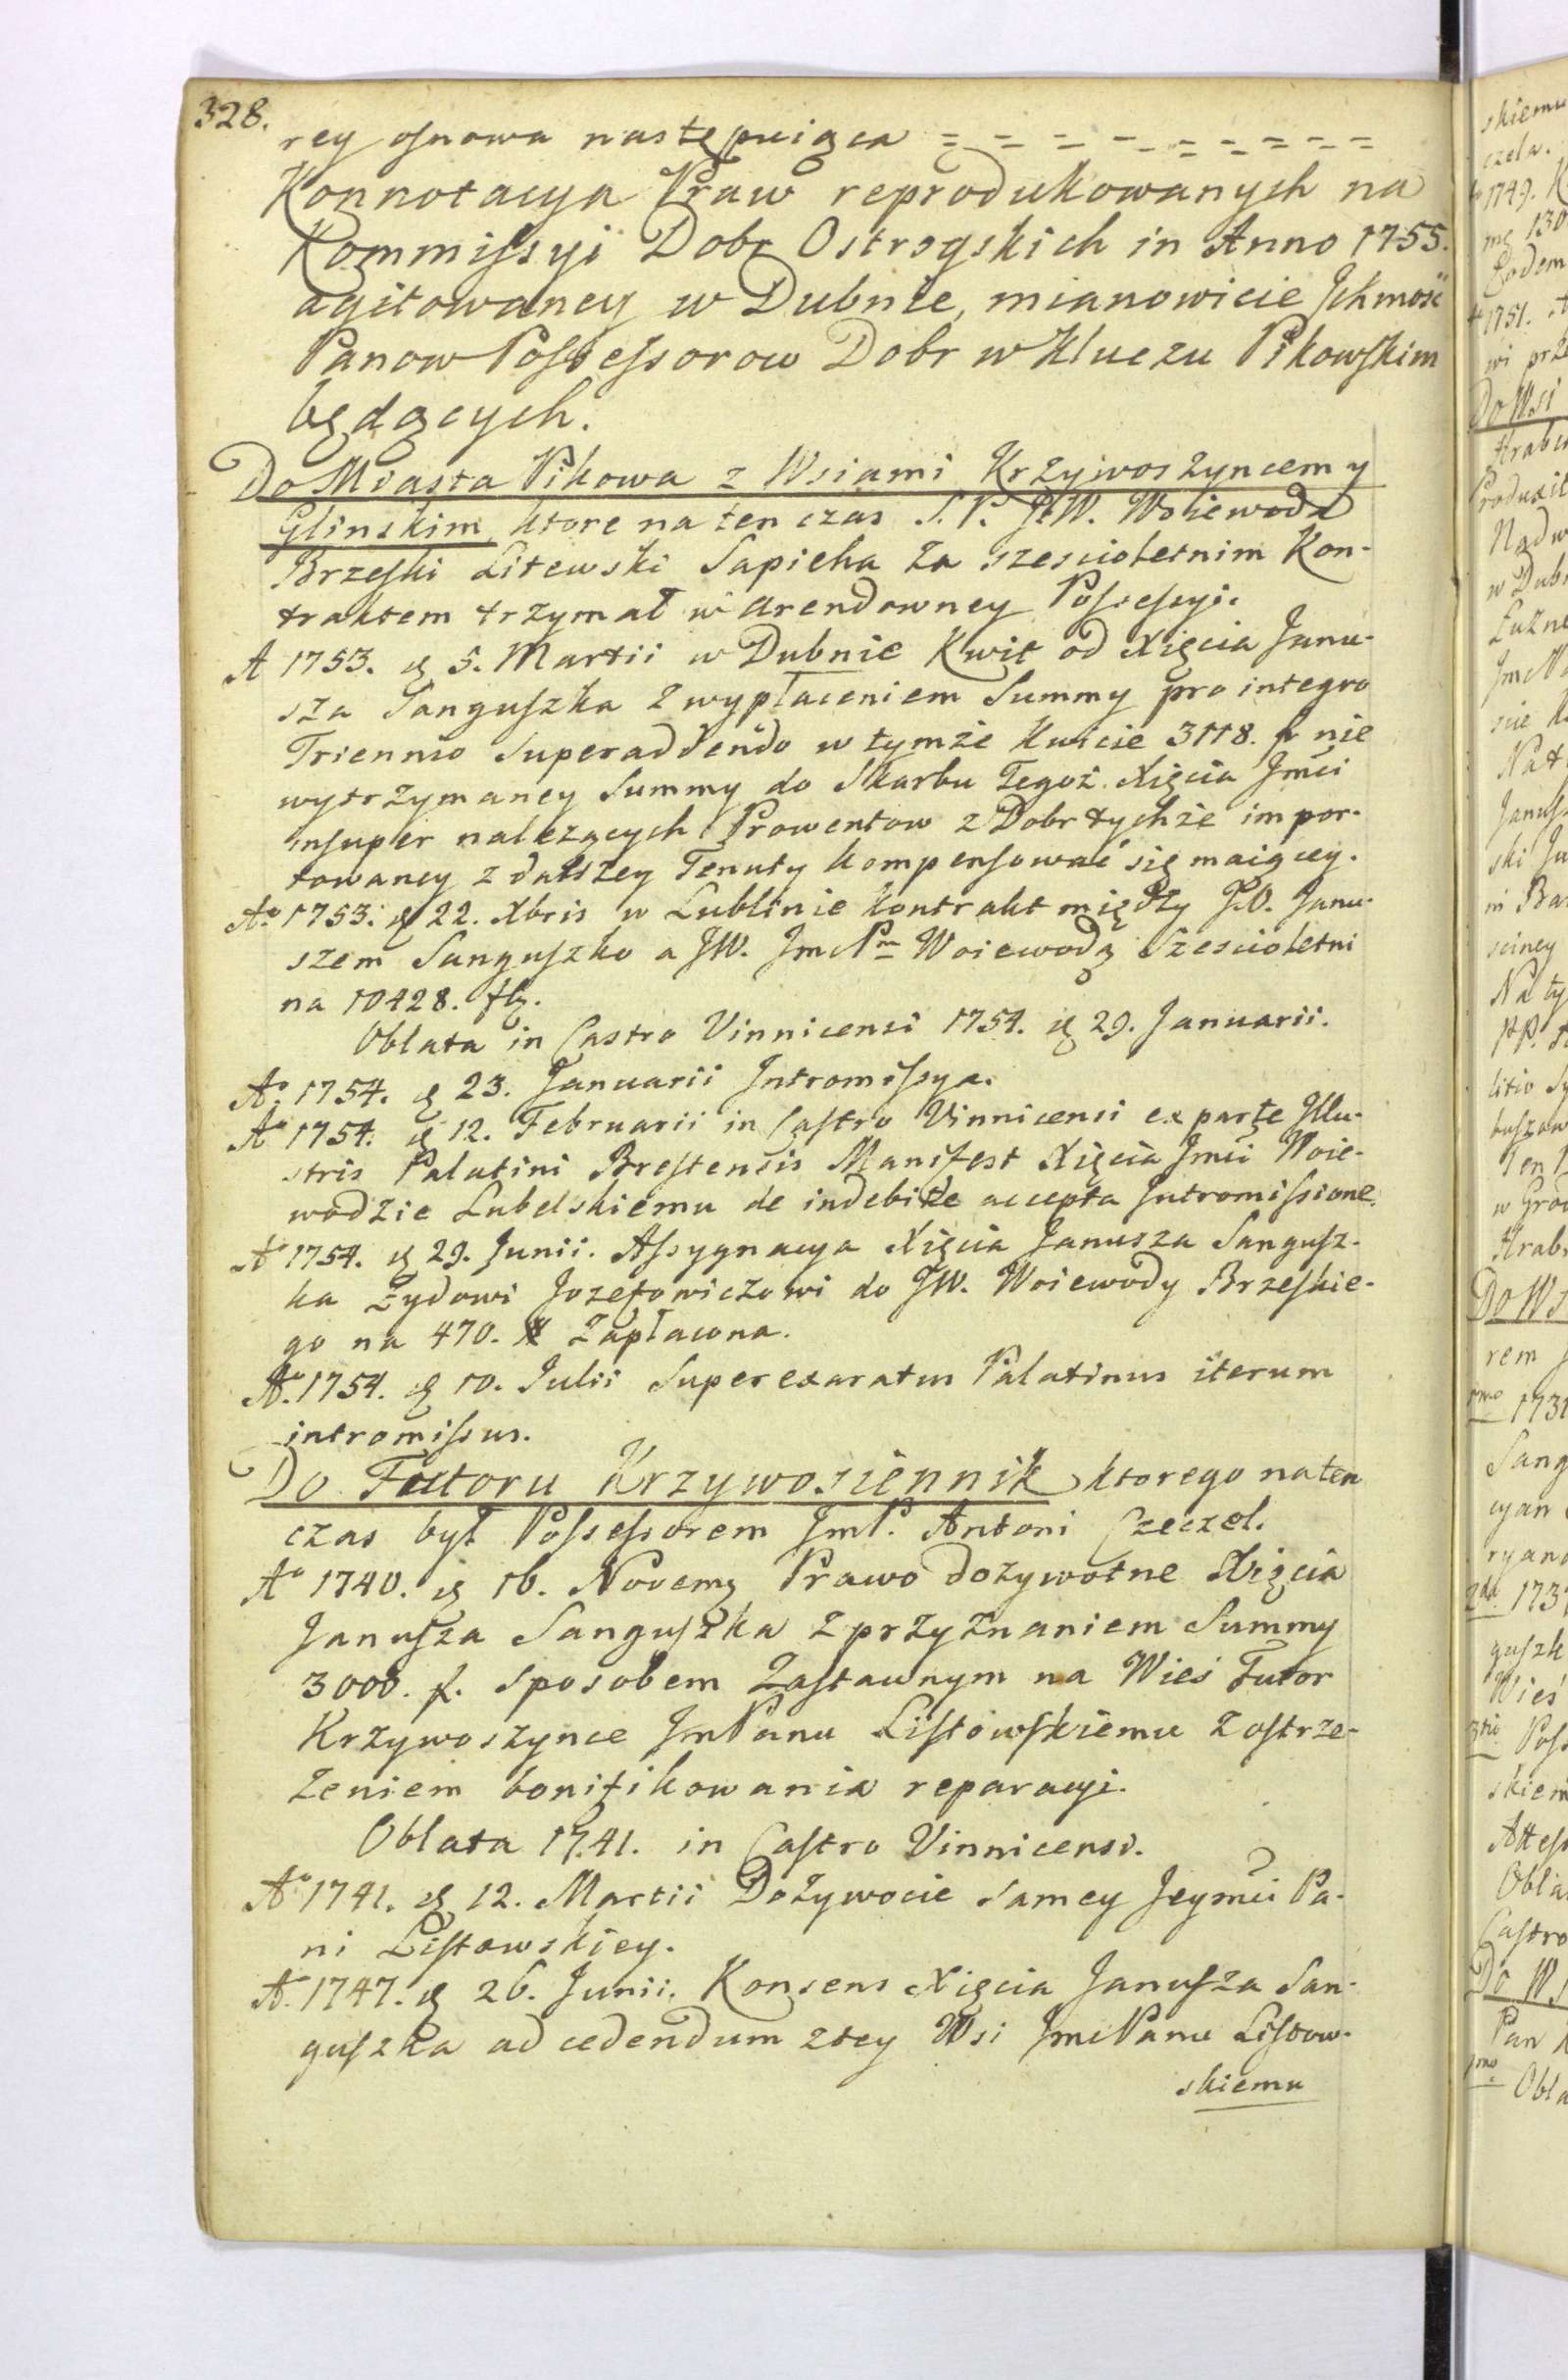 328.
rey osnowa następuiąca = = = = = = = = = =
Konnotacya Praw reprodukowanych na
Kommissyi Dobr Ostrogskich in Anno 1755.
agitowaney w Dubnie, mianowicie Ichmość
Panow Possessorow Dobr w Kluczu Pikowskim
będących.
Do Miasta Pikowa z Wsiami Krzywoszyncem y
Glinskim, ktore na ten czas S. P. JW. Woiewoda
Brzeski Litewski Sapieha za szescioletnim Kon-
traktem trzymał w arendowney Possessyi.
A 1753. d 5. Martii w Dubnie Kwit od Xięcia Janu-
sza Sanguszka z wypłaceniem Summy pro integro
Triennio superaddendo w tymże kwicie 3118. f nie
wytrzymaney Summy do Skarbu Tegoż Xięcia Jmći
insuper należących Prowentow z Dobr tychże impor-
towaney z dalszey Tenuty kompensować się maiącey.
Ao 1753. d 22. Xbris w Lublinie kontrakt między J.O. Janu-
szem Sanguszko a JW. Jmc Pm Woiewodą Szescioletni
na 10428. flp.
Oblata in Castro Vinnicensi 1754. d 29. Januarii.
Ao 1754. d 23. Januarii Intromissya.
Ao 1754. d 12. Februarii in Castro Vinnicensi ex parte Illu-
stris Palatini Brestensis Manifest Xięcia Jmći Woie-
wodzie Lubelskiemu de indebite accepta Intromissione.
Ao 1754. d 29. Junii. Assygnacya Xięcia Janusza Sangusz-
ka Żydowi Jozefowiczowi do JW. Woiewody Brzeskie-
go na 470. Zapłacona.
Ao 1754. d 10. Julii Superexaratus Palatinus iterum
intromissus.
Do Futoru Krzywosiennik ktorego na ten
czas był Possessorem JmP. Antoni Czeczel.
Ao 1740. d 16. Novemb Prawo dożywotne Xięcia
Janusza Sanguszka z przyznaniem Summy
3000. f. sposobem Zastawnym na Wieś Futor
Krzywoszynce JmPanu Listowskiemu z ostrze-
żeniem bonifikowania reparacyi.
Oblata 1741. in Castro Vinnicensi.
Ao 1741. d 12. Martii Dożywocie samey Jeymći Pa-
ni Listowskiey.
Ao 1747. d 26. Junii. Konsens Xięcia Janusza San-
guszka ad cedendum z tey Wsi Jmc Panu Listow-
skiemu